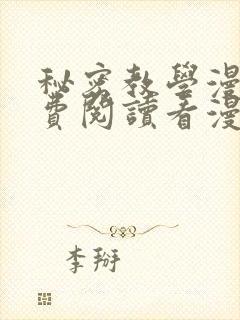 秘密教學漫
費閱讀看漫
李掰